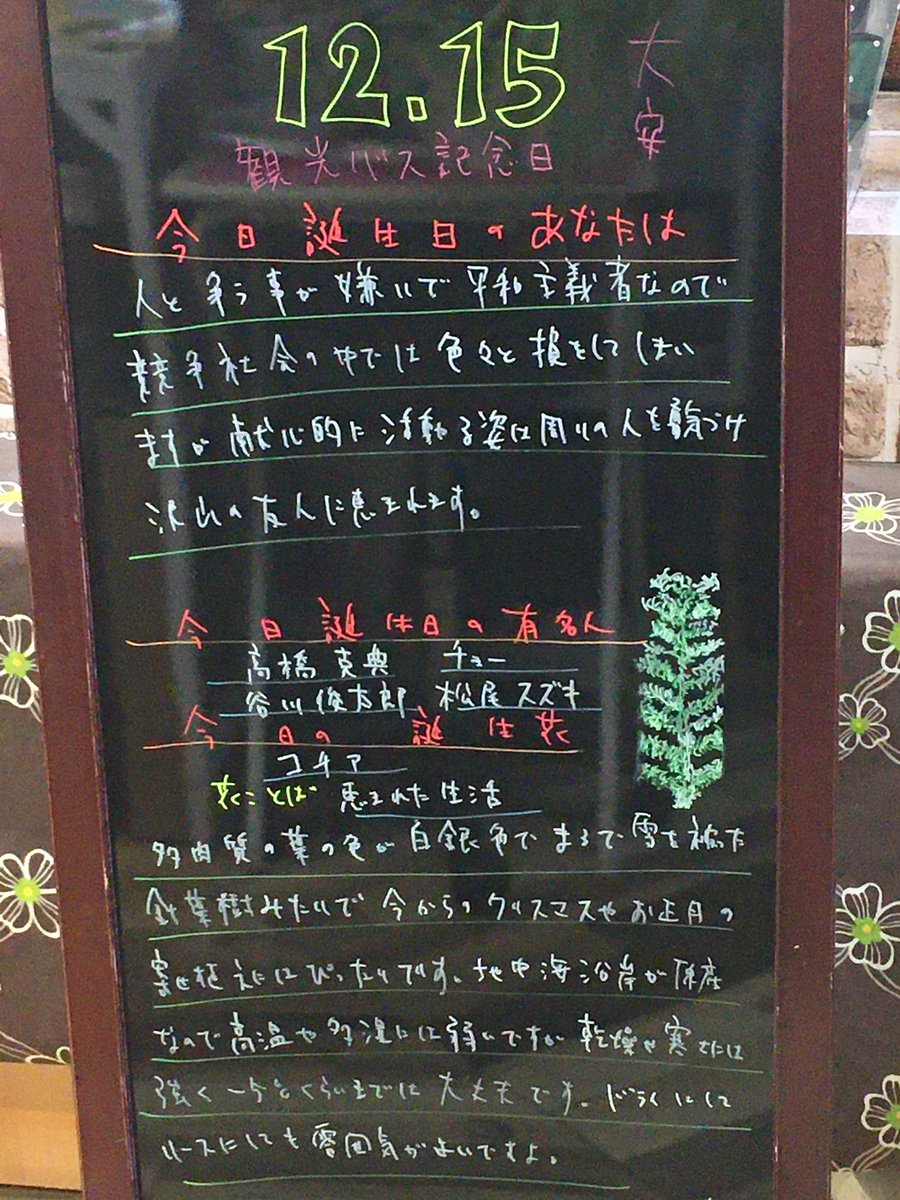 12.15 大安
観光バス記念日
今日誕生日のあなたは
人と争う事が嫌いで平和主義者なので
競争社会の中では色々と損をしてしまい
ますが献身的に活動する姿は周りの人を勇気づけ
沢山の友人に恵まれます。
今日誕生日の有名人
高橋克典 チョー
谷川俊太郎 松尾スズキ
今日の誕生花
コチア
花ことば 恵まれた生活
多肉質の葉の色が白銀色でまるで雪を被った
針葉樹みたいで今からのクリスマスやお正月の
寄せ植えにはぴったりです。地中海沿岸が原産
なので高温や多湿には弱いですが乾燥や寒さには
強く-5℃くらいまでは大丈夫です。ドライにして
リースにしても雰囲気がよいですよ。